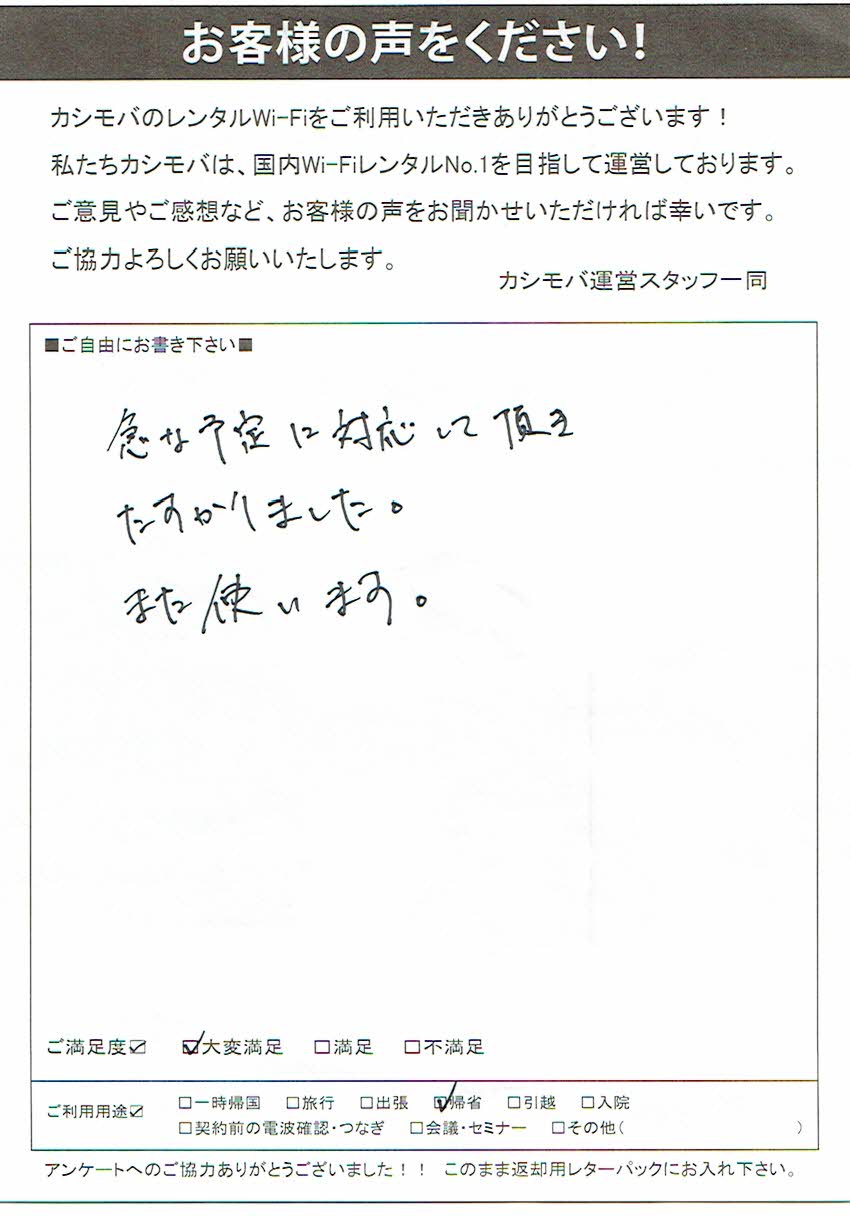 お客様の声をください!
カシモバのレンタルWi-Fiをご利用いただきありがとうございます!
私たちカシモバは、国内Wi-FiレンタルNo.1を目指して運営しております。
ご意見やご感想など、お客様の声をお聞かせいただければ幸いです。
ご協力よろしくお願いいたします。
カシモバ運営スタッフ一同
■ご自由にお書き下さい■
急な予定に対応して頂き
たすかりました。
また使います。
ご満足度☑ ☑大変満足 □満足 □不満足
ご利用用途☑ □一時帰国 □旅行 □出張 ☑帰省 □引越 □入院
□契約前の電波確認・つなぎ □会議・セミナー □その他( )
アンケートへのご協力ありがとうございました!! このまま返却用レターパックにお入れ下さい。